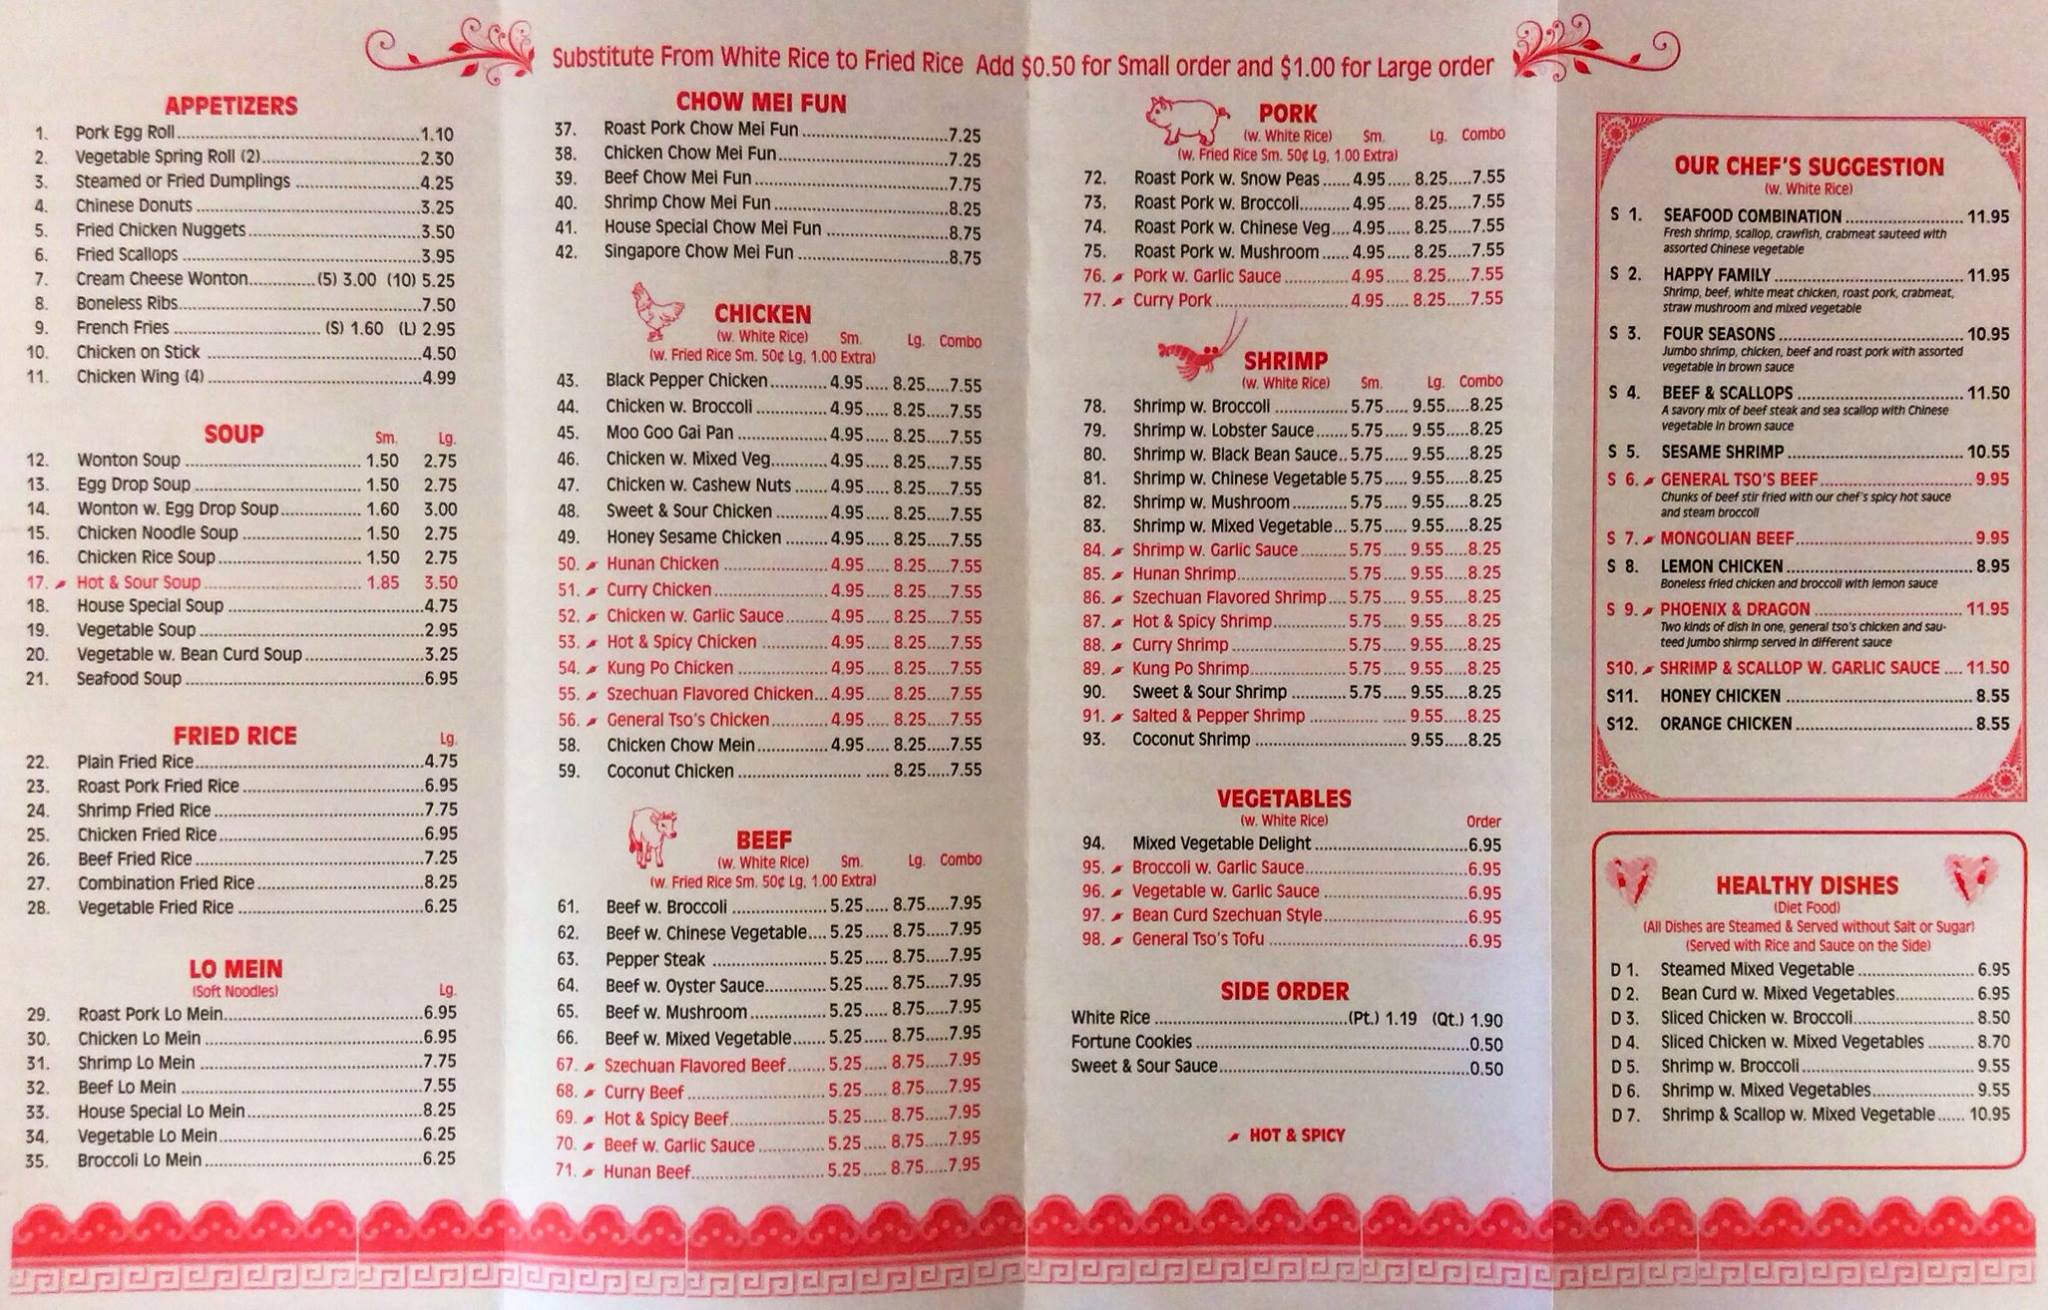 Substitute From White Rice to Fried Rice Add $0.50 for Small order and $1.00 for Large order
APPETIZERS
1. Pork Egg Roll 1.10
2. Vegetable Spring Roll (2) 2.30
3. Steamed or Fried Dumplings 4.25
4. Chinese Donuts 3.25
5. Fried Chicken Nuggets 3.50
6. Fried Scallops 3.95
7. Cream Cheese Wonton (5) 3.00 (10) 5.25
8. Boneless Ribs 7.50
9. French Fries (S) 1.60 (L) 2.95
10. Chicken on Stick 4.50
11. Chicken Wing (4) 4.99
SOUP Sm. Lg.
12. Wonton Soup 1.50 2.75
13. Egg Drop Soup 1.50 2.75
14. Wonton w. Egg Drop Soup 1.60 3.00
15. Chicken Noodle Soup 1.50 2.75
16. Chicken Rice Soup 1.50 2.75
17. Hot & Sour Soup 1.85 3.50
18. House Special Soup 4.75
19. Vegetable Soup 2.95
20. Vegetable w. Bean Curd Soup 3.25
21. Seafood Soup 6.95
FRIED RICE Lg.
22. Plain Fried Rice 4.75
23. Roast Pork Fried Rice 6.95
24. Shrimp Fried Rice 7.75
25. Chicken Fried Rice 6.95
26. Beef Fried Rice 7.25
27. Combination Fried Rice 8.25
28. Vegetable Fried Rice 6.25
LO MEIN
(Soft Noodles) Lg.
29. Roast Pork Lo Mein 6.95
30. Chicken Lo Mein 6.95
31. Shrimp Lo Mein 7.75
32. Beef Lo Mein 7.55
33. House Special Lo Mein 8.25
34. Vegetable Lo Mein 6.25
35. Broccoli Lo Mein 6.25
CHOW MEI FUN
37. Roast Pork Chow Mei Fun 7.25
38. Chicken Chow Mei Fun 7.25
39. Beef Chow Mei Fun 7.75
40. Shrimp Chow Mei Fun 8.25
41. House Special Chow Mei Fun 8.75
42. Singapore Chow Mei Fun 8.75
CHICKEN
(w. White Rice) Sm. Lg. Combo
(w. Fried Rice Sm. 50¢ Lg, 1.00 Extra)
43. Black Pepper Chicken 4.95 8.25 7.55
44. Chicken w. Broccoli 4.95 8.25 7.55
45. Moo Goo Gai Pan 4.95 8.25 7.55
46. Chicken w. Mixed Veg. 4.95 8.25 7.55
47. Chicken w. Cashew Nuts 4.95 8.25 7.55
48. Sweet & Sour Chicken 4.95 8.25 7.55
49. Honey Sesame Chicken 4.95 8.25 7.55
50. Hunan Chicken 4.95 8.25 7.55
51. Curry Chicken 4.95 8.25 7.55
52. Chicken w. Garlic Sauce 4.95 8.25 7.55
53. Hot & Spicy Chicken 4.95 8.25 7.55
54. Kung Po Chicken 4.95 8.25 7.55
55. Szechuan Flavored Chicken 4.95 8.25 7.55
56. General Tso's Chicken 4.95 8.25 7.55
58. Chicken Chow Mein 4.95 8.25 7.55
59. Coconut Chicken 8.25 7.55
BEEF
(w. White Rice) Sm. Lg. Combo
(w. Fried Rice Sm. 50¢ Lg, 1.00 Extra)
61. Beef w. Broccoli 5.25 8.75 7.95
62. Beef w. Chinese Vegetable 5.25 8.75 7.95
63. Pepper Steak 5.25 8.75 7.95
64. Beef w. Oyster Sauce 5.25 8.75 7.95
65. Beef w. Mushroom 5.25 8.75 7.95
66. Beef w. Mixed Vegetable 5.25 8.75 7.95
67. Szechuan Flavored Beef 5.25 8.75 7.95
68. Curry Beef 5.25 8.75 7.95
69. Hot & Spicy Beef 5.25 8.75 7.95
70. Beef w. Garlic Sauce 5.25 8.75 7.95
71. Hunan Beef 5.25 8.75 7.95
PORK
(w. White Rice) Sm. Lg. Combo
(w. Fried Rice Sm. 50¢ Lg, 1.00 Extra)
72. Roast Pork w. Snow Peas 4.95 8.25 7.55
73. Roast Pork w. Broccoli 4.95 8.25 7.55
74. Roast Pork w. Chinese Veg 4.95 8.25 7.55
75. Roast Pork w. Mushroom 4.95 8.25 7.55
76. Pork w. Garlic Sauce 4.95 8.25 7.55
77. Curry Pork 4.95 8.25 7.55
SHRIMP
(w. White Rice) Sm. Lg. Combo
78. Shrimp w. Broccoli 5.75 9.55 8.25
79. Shrimp w. Lobster Sauce 5.75 9.55 8.25
80. Shrimp w. Black Bean Sauce 5.75 9.55 8.25
81. Shrimp w. Chinese Vegetable 5.75 9.55 8.25
82. Shrimp w. Mushroom 5.75 9.55 8.25
83. Shrimp w. Mixed Vegetable 5.75 9.55 8.25
84. Shrimp w. Garlic Sauce 5.75 9.55 8.25
85. Hunan Shrimp 5.75 9.55 8.25
86. Szechuan Flavored Shrimp 5.75 9.55 8.25
87. Hot & Spicy Shrimp 5.75 9.55 8.25
88. Curry Shrimp 5.75 9.55 8.25
89. Kung Po Shrimp 5.75 9.55 8.25
90. Sweet & Sour Shrimp 5.75 9.55 8.25
91. Salted & Pepper Shrimp 9.55 8.25
93. Coconut Shrimp 9.55 8.25
VEGETABLES
(w. White Rice) Order
94. Mixed Vegetable Delight 6.95
95. Broccoli w. Garlic Sauce 6.95
96. Vegetable w. Garlic Sauce 6.95
97. Bean Curd Szechuan Style 6.95
98. General Tso's Tofu 6.95
SIDE ORDER
White Rice (Pt.) 1.19 (Qt.) 1.90
Fortune Cookies 0.50
Sweet & Sour Sauce 0.50
HOT & SPICY
OUR CHEF'S SUGGESTION
(w. White Rice)
S 1. SEAFOOD COMBINATION 11.95
Fresh shrimp, scallop, crawfish, crabmeat sauteed with
assorted Chinese vegetable
S 2. HAPPY FAMILY 11.95
Shrimp, beef, white meat chicken, roast pork, crabmeat,
straw mushroom and mixed vegetable
S 3. FOUR SEASONS 10.95
Jumbo shrimp, chicken, beef and roast pork with assorted
vegetable in brown sauce
S 4. BEEF & SCALLOPS 11.50
A savory mix of beef steak and sea scallop with Chinese
vegetable in brown sauce
S 5. SESAME SHRIMP 10.55
S 6. GENERAL TSO'S BEEF 9.95
Chunks of beef stir fried with our chef's spicy hot sauce
and steam broccoli
S 7. MONGOLIAN BEEF 9.95
S 8. LEMON CHICKEN 8.95
Boneless fried chicken and broccoli with lemon sauce
S 9. PHOENIX & DRAGON 11.95
Two kinds of dish in one, general tso's chicken and sau-
teed jumbo shirmp served in different sauce
S10. SHRIMP & SCALLOP W. GARLIC SAUCE 11.50
S11. HONEY CHICKEN 8.55
S12. ORANGE CHICKEN 8.55
HEALTHY DISHES
(Diet Food)
(All Dishes are Steamed & Served without Salt or Sugar)
(Served with Rice and Sauce on the Side)
D 1. Steamed Mixed Vegetable 6.95
D 2. Bean Curd w. Mixed Vegetables 6.95
D 3. Sliced Chicken w. Broccoli 8.50
D 4. Sliced Chicken w. Mixed Vegetables 8.70
D 5. Shrimp w. Broccoli 9.55
D 6. Shrimp w. Mixed Vegetables 9.55
D 7. Shrimp & Scallop w. Mixed Vegetable 10.95